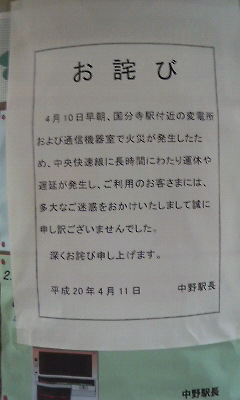 お詫び
4月10日早朝、国分寺駅付近の変電所
および通信機器室で火災が発生したた
め、中央快速線に長時間にわたり運休や
遅延が発生し、ご利用のお客さまには、
多大なご迷惑をおかけいたしまして誠に
申し訳ございませんでした。
深くお詫び申し上げます。
平成20年4月11日 中野駅長
2.
中野駅長